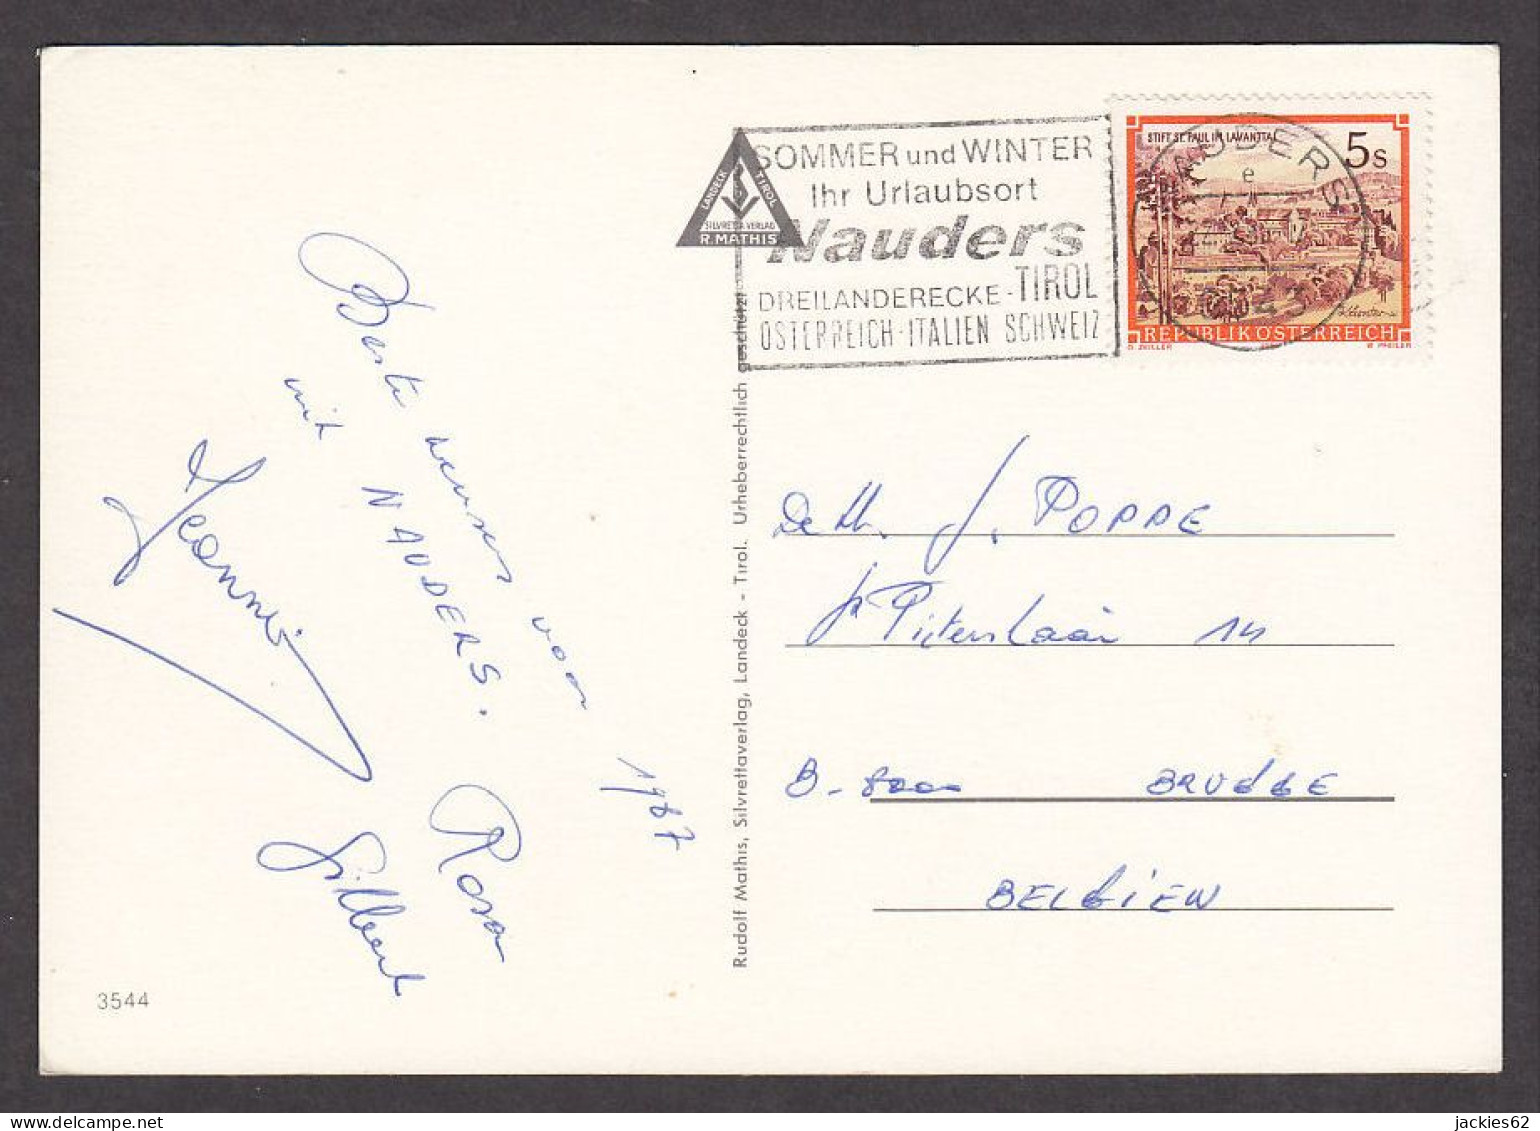 Beste wensen voor 1987
mit NAUDERS.
Jeannine
Rosa
Gilbert
3544
Rudolf Mathis, Silvrettaverlag, Landeck - Tirol. Urheberrechtlich geschützt
LANDECK TIROL
SILVRETTA VERLAG
R. MATHIS
SOMMER und WINTER
Ihr Urlaubsort
Nauders
DREILANDERECKE - TIROL
ÖSTERREICH-ITALIEN SCHWEIZ
NAUDERS
e
6543
STIFT ST. PAUL IM LAVANTTAL
5s
REPUBLIK ÖSTERREICH
O. ZEILLER
K. PFEILER
De Hr. J. POPPE
Pieterslaan 14
B-8000 BRUGGE
BELGIEN
jackies62